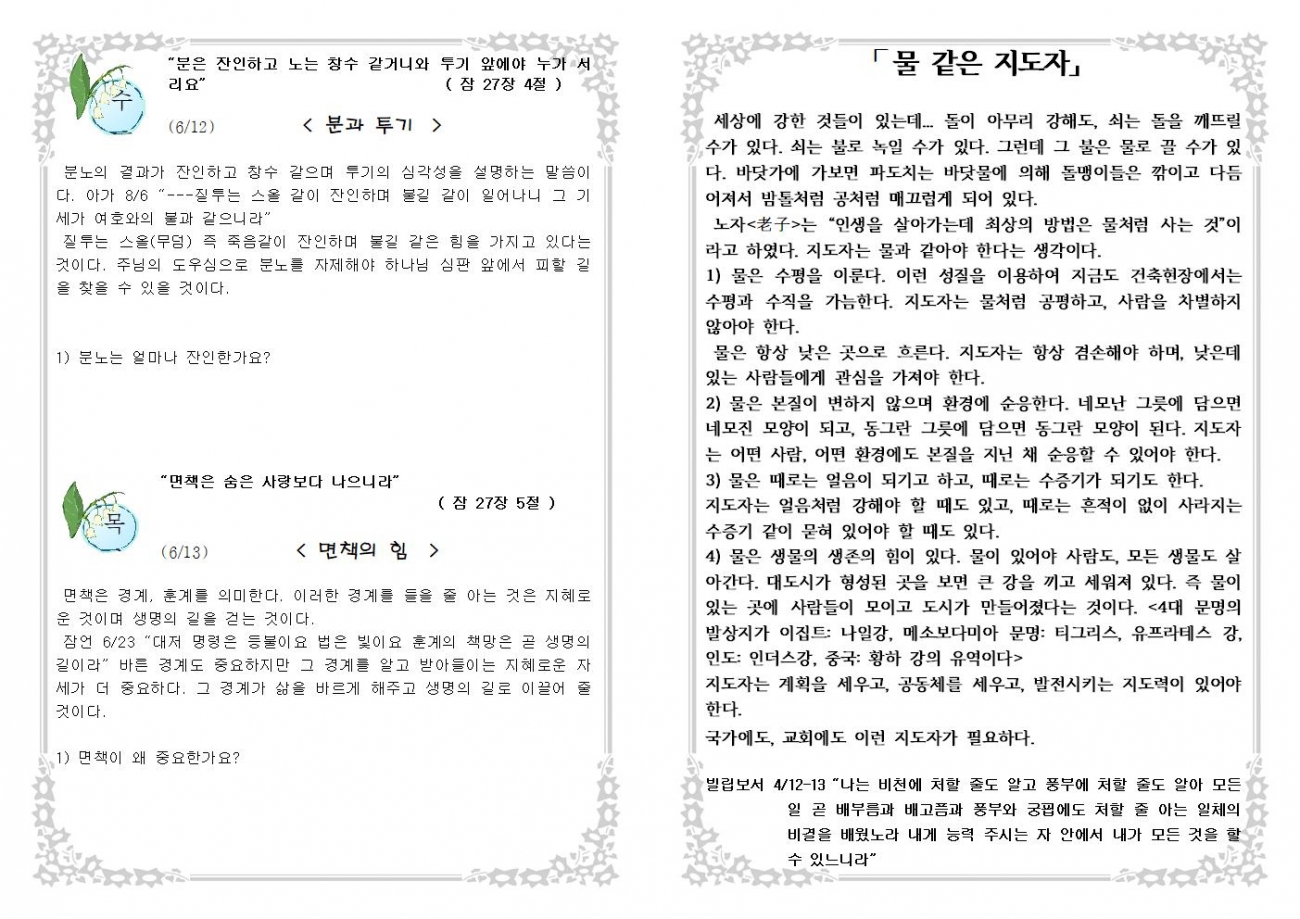 “분은 잔인하고 노는 창수 같거니와 투기 앞에야 누가 서
리요” ( 잠 27장 4절 )
수
(6/12) < 분과 투기 >
분노의 결과가 잔인하고 창수 같으며 투기의 심각성을 설명하는 말씀이
다. 아가 8/6 “---질투는 스올 같이 잔인하며 불길 같이 일어나니 그 기
세가 여호와의 불과 같으니라”
질투는 스올(무덤) 즉 죽음같이 잔인하며 불길 같은 힘을 가지고 있다는
것이다. 주님의 도우심으로 분노를 자제해야 하나님 심판 앞에서 피할 길
을 찾을 수 있을 것이다.
1) 분노는 얼마나 잔인한가요?
“면책은 숨은 사랑보다 나으니라”
( 잠 27장 5절 )
목
(6/13) < 면책의 힘 >
면책은 경계, 훈계를 의미한다. 이러한 경계를 들을 줄 아는 것은 지혜로
운 것이며 생명의 길을 걷는 것이다.
잠언 6/23 “대저 명령은 등불이요 법은 빛이요 훈계의 책망은 곧 생명의
길이라” 바른 경계도 중요하지만 그 경계를 알고 받아들이는 지혜로운 자
세가 더 중요하다. 그 경계가 삶을 바르게 해주고 생명의 길로 이끌어 줄
것이다.
1) 면책이 왜 중요한가요?
「물 같은 지도자」
세상에 강한 것들이 있는데... 돌이 아무리 강해도, 쇠는 돌을 깨뜨릴
수가 있다. 쇠는 불로 녹일 수가 있다. 그런데 그 불은 물로 끌 수가 있
다. 바닷가에 가보면 파도치는 바닷물에 의해 돌맹이들은 깎이고 다듬
어져서 밤톨처럼 공처럼 매끄럽게 되어 있다.
노자<老子>는 “인생을 살아가는데 최상의 방법은 물처럼 사는 것”이
라고 하였다. 지도자는 물과 같아야 한다는 생각이다.
1) 물은 수평을 이룬다. 이런 성질을 이용하여 지금도 건축현장에서는
수평과 수직을 가늠한다. 지도자는 물처럼 공평하고, 사람을 차별하지
않아야 한다.
물은 항상 낮은 곳으로 흐른다. 지도자는 항상 겸손해야 하며, 낮은데
있는 사람들에게 관심을 가져야 한다.
2) 물은 본질이 변하지 않으며 환경에 순응한다. 네모난 그릇에 담으면
네모진 모양이 되고, 동그란 그릇에 담으면 동그란 모양이 된다. 지도자
는 어떤 사람, 어떤 환경에도 본질을 지닌 채 순응할 수 있어야 한다.
3) 물은 때로는 얼음이 되기고 하고, 때로는 수증기가 되기도 한다.
지도자는 얼음처럼 강해야 할 때도 있고, 때로는 흔적이 없이 사라지는
수증기 같이 묻혀 있어야 할 때도 있다.
4) 물은 생물의 생존의 힘이 있다. 물이 있어야 사람도, 모든 생물도 살
아간다. 대도시가 형성된 곳을 보면 큰 강을 끼고 세워져 있다. 즉 물이
있는 곳에 사람들이 모이고 도시가 만들어졌다는 것이다. <4대 문명의
발상지가 이집트: 나일강, 메소보다미아 문명: 티그리스, 유프라테스 강,
인도: 인더스강, 중국: 황하 강의 유역이다>
지도자는 계획을 세우고, 공동체를 세우고, 발전시키는 지도력이 있어야
한다.
국가에도, 교회에도 이런 지도자가 필요하다.
빌립보서 4/12-13 “나는 비천에 처할 줄도 알고 풍부에 처할 줄도 알아 모든
일 곧 배부름과 배고픔과 풍부와 궁핍에도 처할 줄 아는 일체의
비결을 배웠노라 내게 능력 주시는 자 안에서 내가 모든 것을 할
수 있느니라”